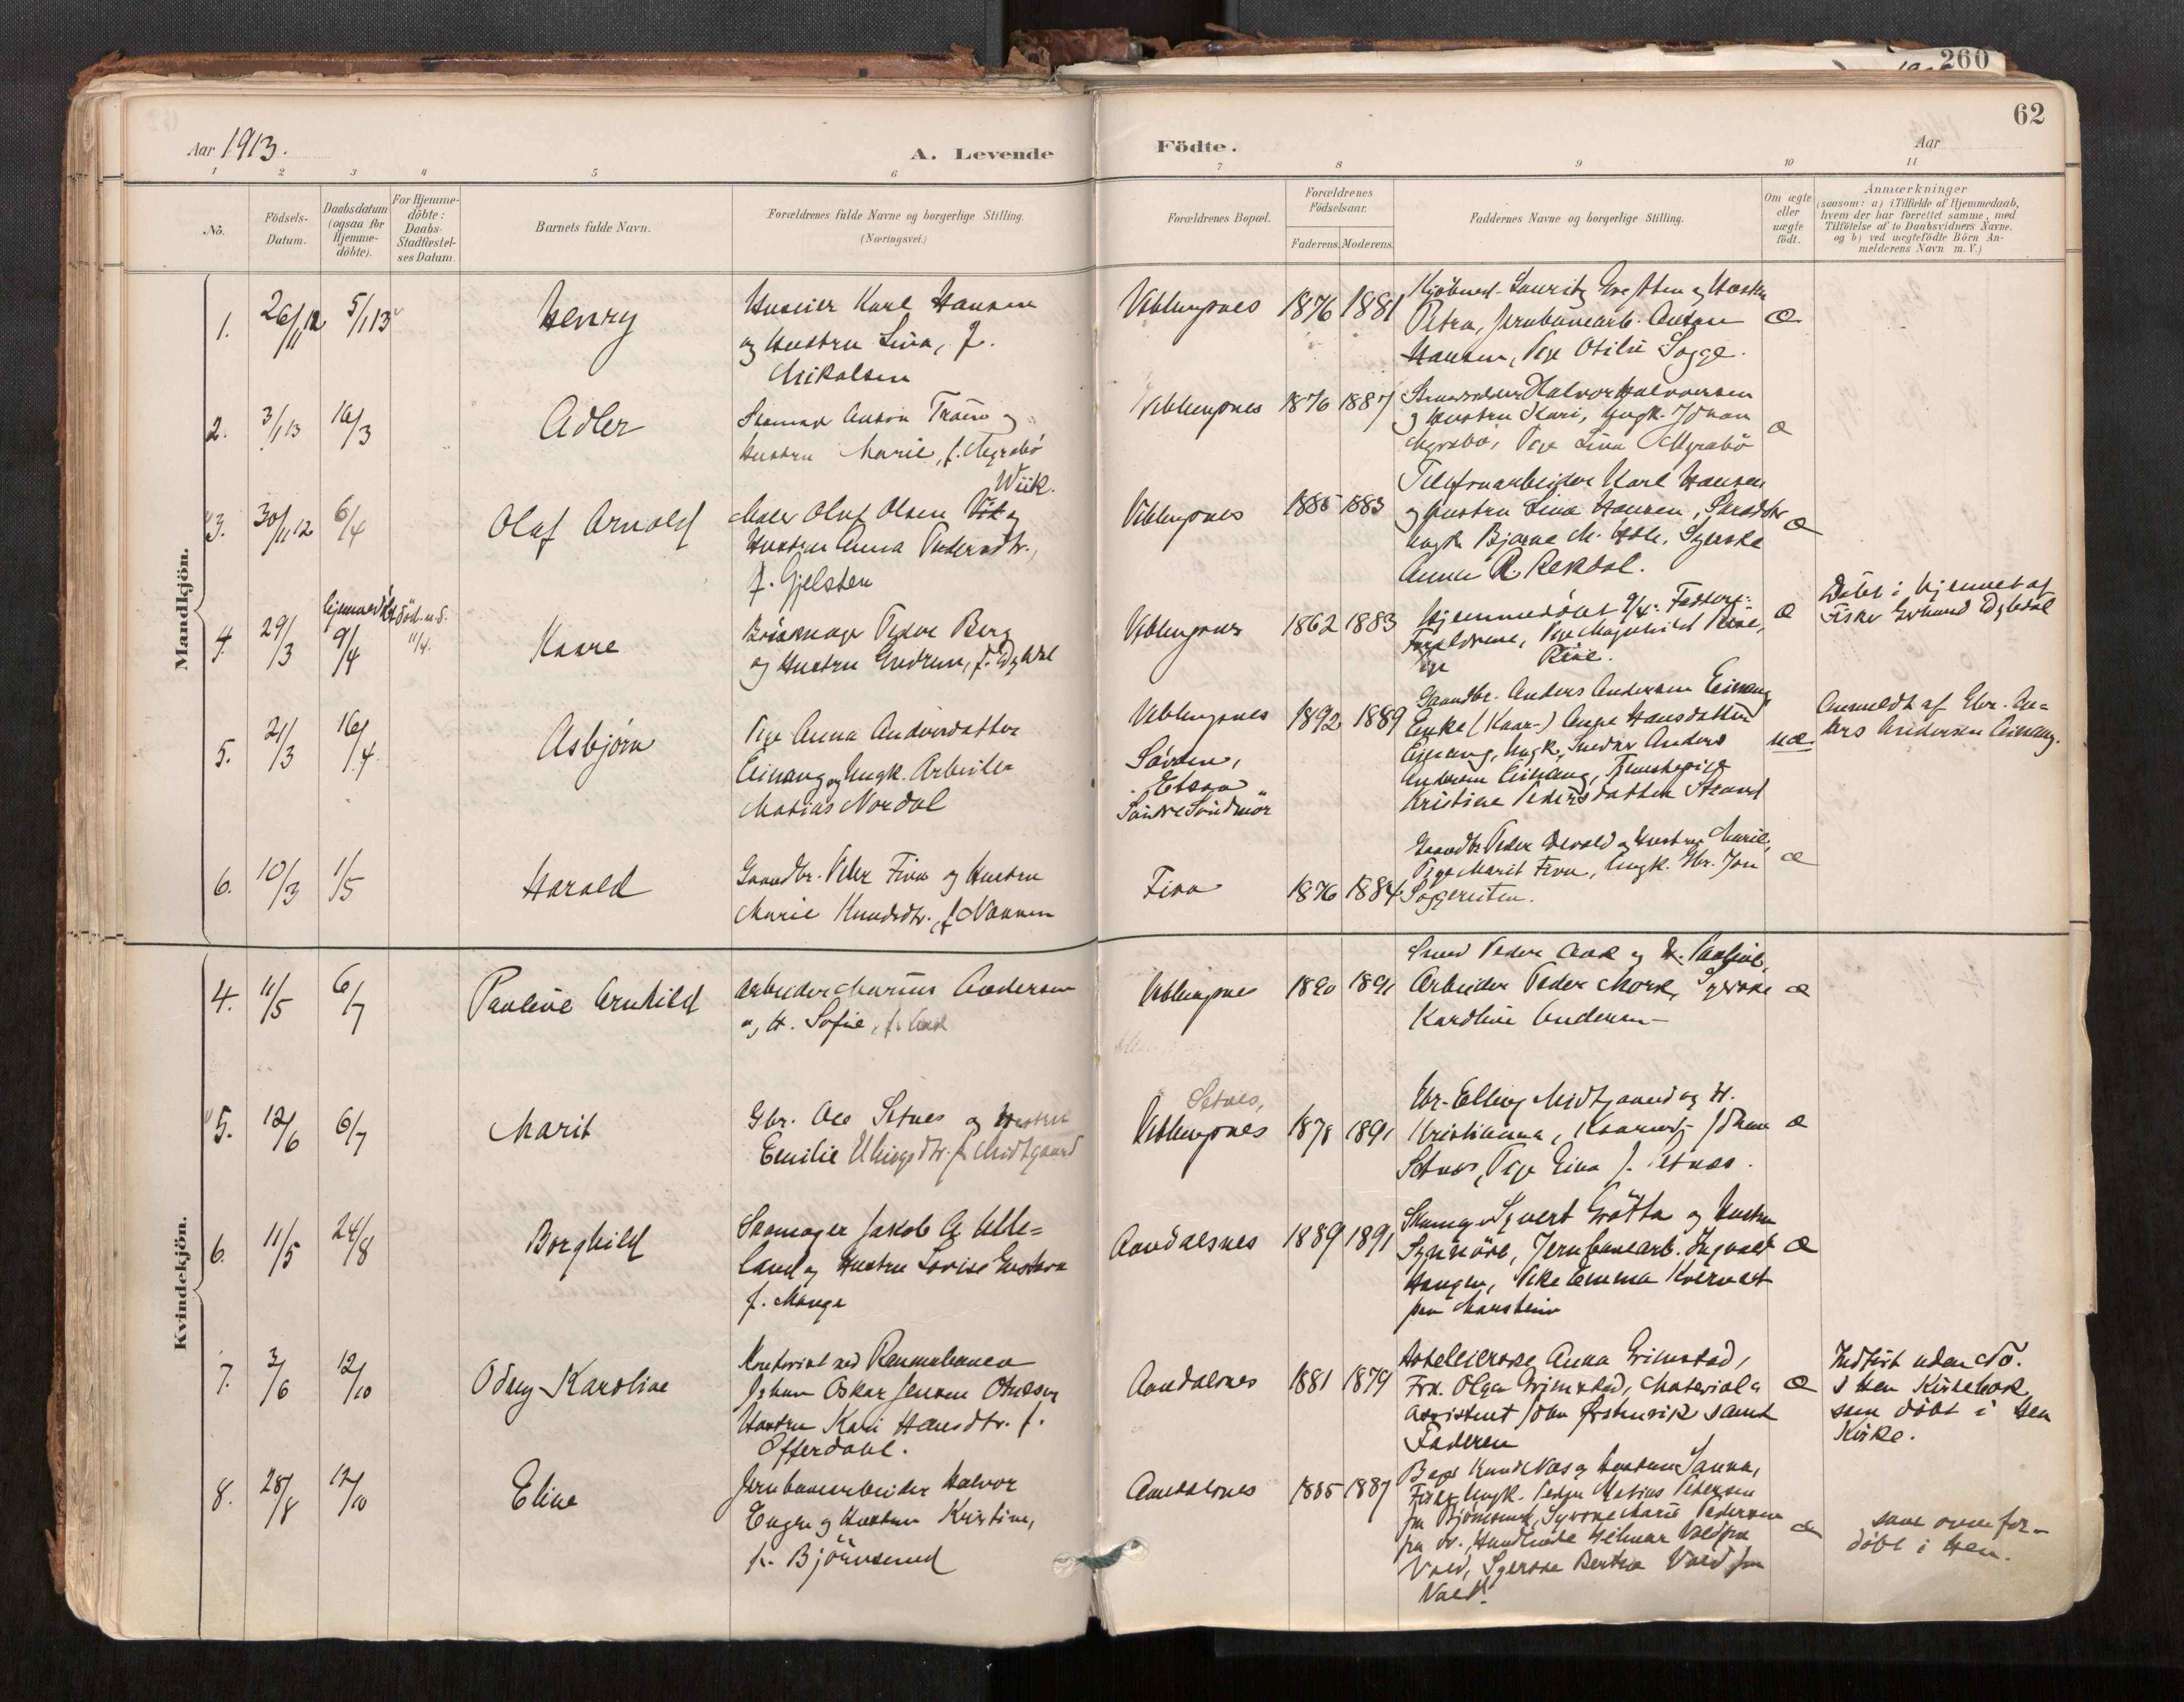 260
62
Aar 1913.
A. Levende
Födte.
Aar
1 2 3 4 5 6 7 8 9 10 11
No.
Födsels-
Datum.
Daabsdatum
(ogsaa for
Hjemme-
döbte).
For Hjemme-
döbte:
Daabs-
Stadfæstel-
ses Datum.
Barnets fulde Navn.
Forældrenes fulde Navne og borgerlige Stilling.
(Næringsvei.)
Forældrenes Bopæl.
Forældrenes
Födselsaar.
Faderens.
Moderens.
Faddernes Navne og borgerlige Stilling.
Om ægte
eller
uægte
födt.
Anmærkninger
(saasom: a) i Tilfælde af Hjemmedaab,
hvem der har forrettet samme, med
Tilföielse af to Daabsvidners Navne,
og b) ved uægtefödte Börn An-
melderens Navn m. V.)
Mandkjön.
1.
26/11 12
5/1 13
Henry
Huseier Karl Hansen
og Hustru Lina, f.
Mikalsen
Veblungsnes
1876
1881
Petra, Jernbanearb. Anton
Hansen, Pige Otilie Sogge.
æ
2.
3/1 13
16/3
Adler
Skomager Anton
Hustru Marie, f. Myrabö
Veblungsnes
1876
1887
Halvor Halvorsen
og Hustru Kari, Ungk. Johan
Myrabö, Pige Lina Myrabö
æ
3.
30/11 12
6/4
Olaf Arnold
Wiik.
Maler Oluf Olsen Vik og
Hustru Anna Pedersdtr.,
f. Gjelsten
Veblungsnes
1885
1883
Telefonarbeider Karl Hansen
og Hustru Lina Hansen,
Ungk. Bjarne M. Hole, Syerske
Anna R. Rekdal.
æ
4.
29/3
Hjemmedöbt
9/4
död u. d.
11/4.
Kaare
Peder Berg
og Hustru Gudrun, f. Dybdal
Veblungsnes
1862
1883
Hjemmedöbt 9/4. Faddere:
Forældrene, Pige Magnhild
æ
Döbt i hjemmet af
Fisker Erhard Dybdal
5.
21/3
16/4
Asbjörn
Pige Anna Andersdatter
Einang og Ungk. Arbeider
Matias Nordal
Veblungsnes
Söndre Söndmör
1892
1889
Gaardbr. Anders Andersen Einang,
Enke (Kaar-) Anne Hansdatter
Einang, Ungk. Snedker Anders
Andersen Einang, Tjenestepige
Kristine Pedersdatter Strand
uæ.
Anmeldt af Gbr. An-
ders Andersen Einang.
6.
10/3
1/5
Harald
Gaardbr. Peder Fiva og Hustru
Marie Knudsdtr., f. Venaas
Fiva
1876
1884
Gaardbr. Peder Devold og Hustru Marie,
Pige Marit Fiva, Ungk. Gbr. Jon
Soggeusten.
æ
Kvindekjön.
4.
11/5
6/7
Pauline Arnhild
Arbeider Marius Andersen
og H. Sofie, f. Aak
Veblungsnes
1890
1891
Smed Peder Aak og H. Pauline,
Arbeider Peder Mork, Syerske
Karoline Andersen
æ
5.
12/6
6/7
Marit
Gbr. Ole Setnes og Hustru
Emilie Ellingsdtr. f. Midtgaard
Setnes,
Veblungsnes
1878
1891
Gbr. Elling Midtgaard og H.
Kristianna, Kaarmd. Johan
Setnes, Pige Eina J. Setnes.
æ
6.
11/5
24/8
Borghild
Skomager Jakob A. Ulle-
land og Hustru Lovise Gustava
f. Mauge
Aandalsnes
1889
1891
Skomager Syvert Grötta og Hustru
Synnöve, Jernbanearb. Ingvald
Haugen, Pike Emma Kvernet
paa Marstein
æ
7.
3/6
12/10
Odny Karoline
Kontorist ved Raumabanen
Johan Oskar Jensen
Hustru Kari Hansdtr. f.
Offerdahl.
Aandalsnes
1881
1879
Hoteleierske Anna Grimstad,
Frk. Olga Grimstad, Material-
assistent John Örstenvik samt
Faderen
æ
Indfört uden No.
i Hen Kirkebok
som döbt i Hen
Kirke.
8.
28/8
12/10
Eline
Jernbanearbeider Halvor
Engen og Hustru Kristine,
f. Björnsund
Aandalsnes
1885
1887
Bager Knut Næs og Hustru Sanna,
Fisker Ungk. Peder Matias Petersen
fra Björnsund, Syerske Marie Pedersen
fra do., Handlende Hilmar Vold fra
Vold, Syerske Bertha Vold fra
Vold.
æ
som ovenfor
döbt i Hen.